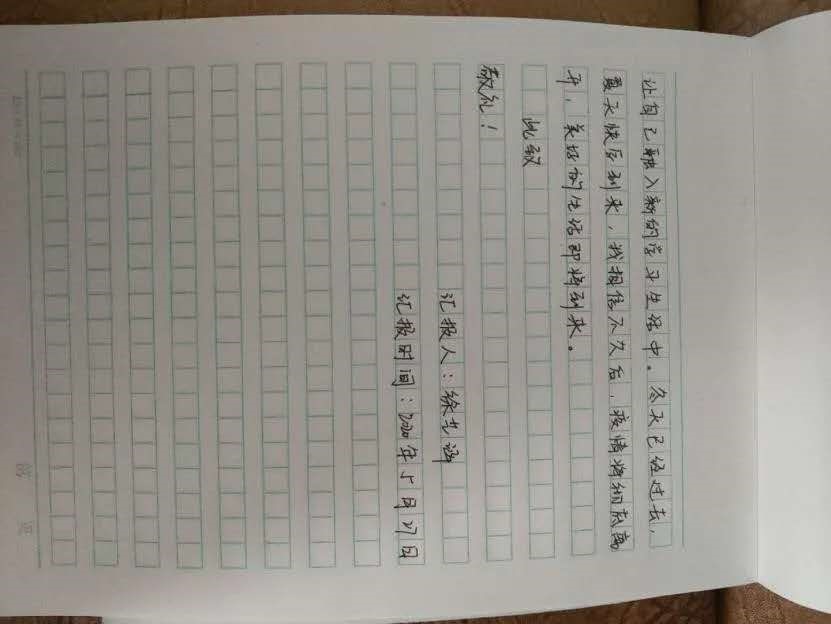 让自己融入新的学习生活中。冬天已经过去，
夏天快要到来，我相信不久后，疫情将彻底离
开，美好的生活即将到来。
此致
敬礼！
汇报人：徐
汇报时间：2020年5月27日